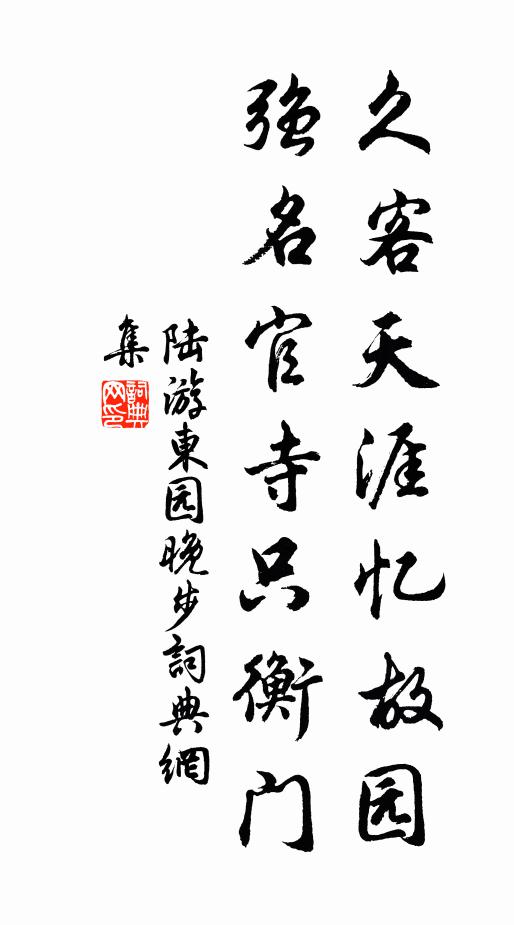 久客天涯忆故园
强名官寺只衡门
陆游東园晚步詞典網
集
詞典
网印